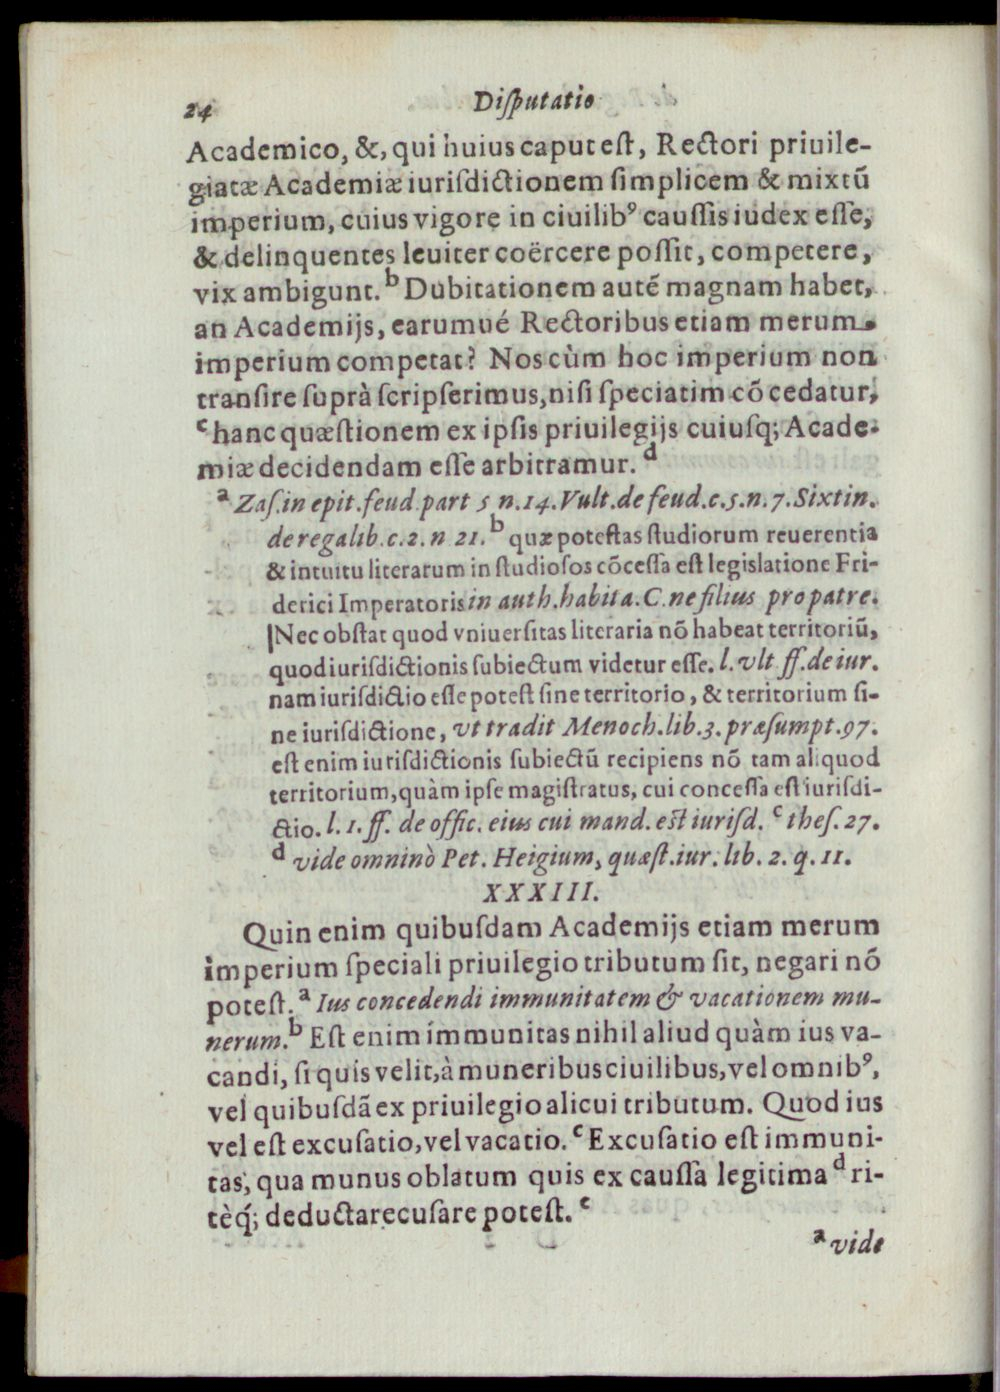 24 Diſputatio
Academico, &, qui huius caput eſt, Rectori priuile-
giatæ Academiæ iuriſdictionem ſimplicem & mixtū
imperium, cuius vigore in ciuilibꝰ cauſſis iudex eſſe,
& delinquentes leuiter coërcere poſſit, competere,
vix ambigunt. ᵇ Dubitationem autē magnam habet,
an Academijs, earumué Rectoribus etiam merum
imperium competat? Nos cùm hoc imperium non
tranſire ſuprà ſcripſerimus, niſi ſpeciatim cō cedatur,
ᶜ hanc quæſtionem ex ipſis priuilegijs cuiuſq; Acade-
miæ decidendam eſſe arbitramur. ᵈ
ᵃ Zaſ. in epit. feud. part 5 n. 14. Vult. de feud. c. 5. n. 7. Sixtin.
de regalib. c. 2. n 21. ᵇ quæ poteſtas ſtudiorum reuerentia
& intuitu literarum in ſtudioſos cōceſſa eſt legislatione Fri-
derici Imperatoris in auth. habita. C. ne filius pro patre.
Nec obſtat quod vniuerſitas literaria nō habeat territoriū,
quod iuriſdictionis ſubiectum videtur eſſe. l. vlt ff. de iur.
nam iuriſdictio eſſe poteſt ſine territorio, & territorium ſi-
ne iuriſdictione, vt tradit Menoch. lib. 3. præſumpt. 97.
eſt enim iuriſdictionis ſubiectū recipiens nō tam aliquod
territorium, quàm ipſe magiſtratus, cui conceſſa eſt iuriſdi-
ctio. l. 1. ff. de offic. eius cui mand. eſt iuriſd. ᶜ theſ. 27.
ᵈ vide omninò Pet. Heigium, quæſt. iur. lib. 2. q. 11.
XXXIII.
Quin enim quibuſdam Academijs etiam merum
imperium ſpeciali priuilegio tributum ſit, negari nō
poteſt. ᵃ Ius concedendi immunitatem & vacationem mu-
nerum. ᵇ Eſt enim immunitas nihil aliud quàm ius va-
candi, ſi quis velit, à muneribus ciuilibus, vel omnibꝰ,
vel quibuſdā ex priuilegio alicui tributum. Quod ius
vel eſt excuſatio, vel vacatio. ᶜ Excuſatio eſt immuni-
tas, qua munus oblatum quis ex cauſſa legitima ᵈ ri-
tèq́; deducta recuſare poteſt. ᵉ
ᵃ vide